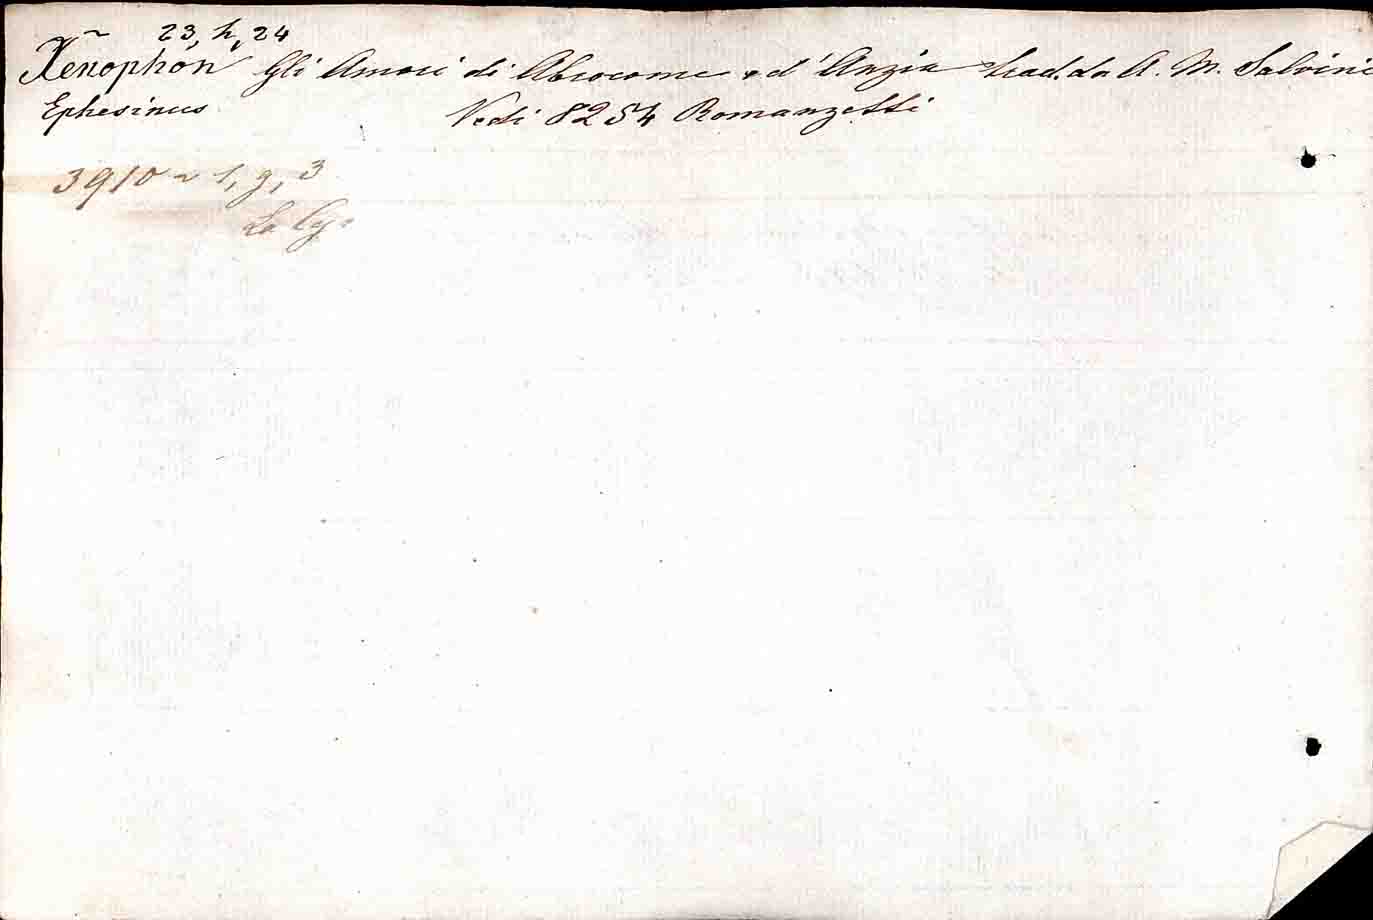 ~ 23, h, 24
Xenophon Gli Amori di Abrocome e d'Anzia trad. da A. M. Salvini
Ephesinus Vedi 8254 Romanzetti
3910 ~ 1, g, 3
La